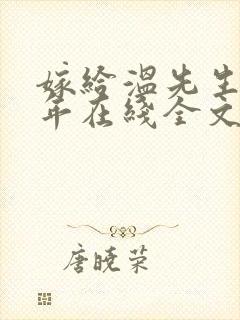 嫁給溫先生
年在綫全文
唐曉荣